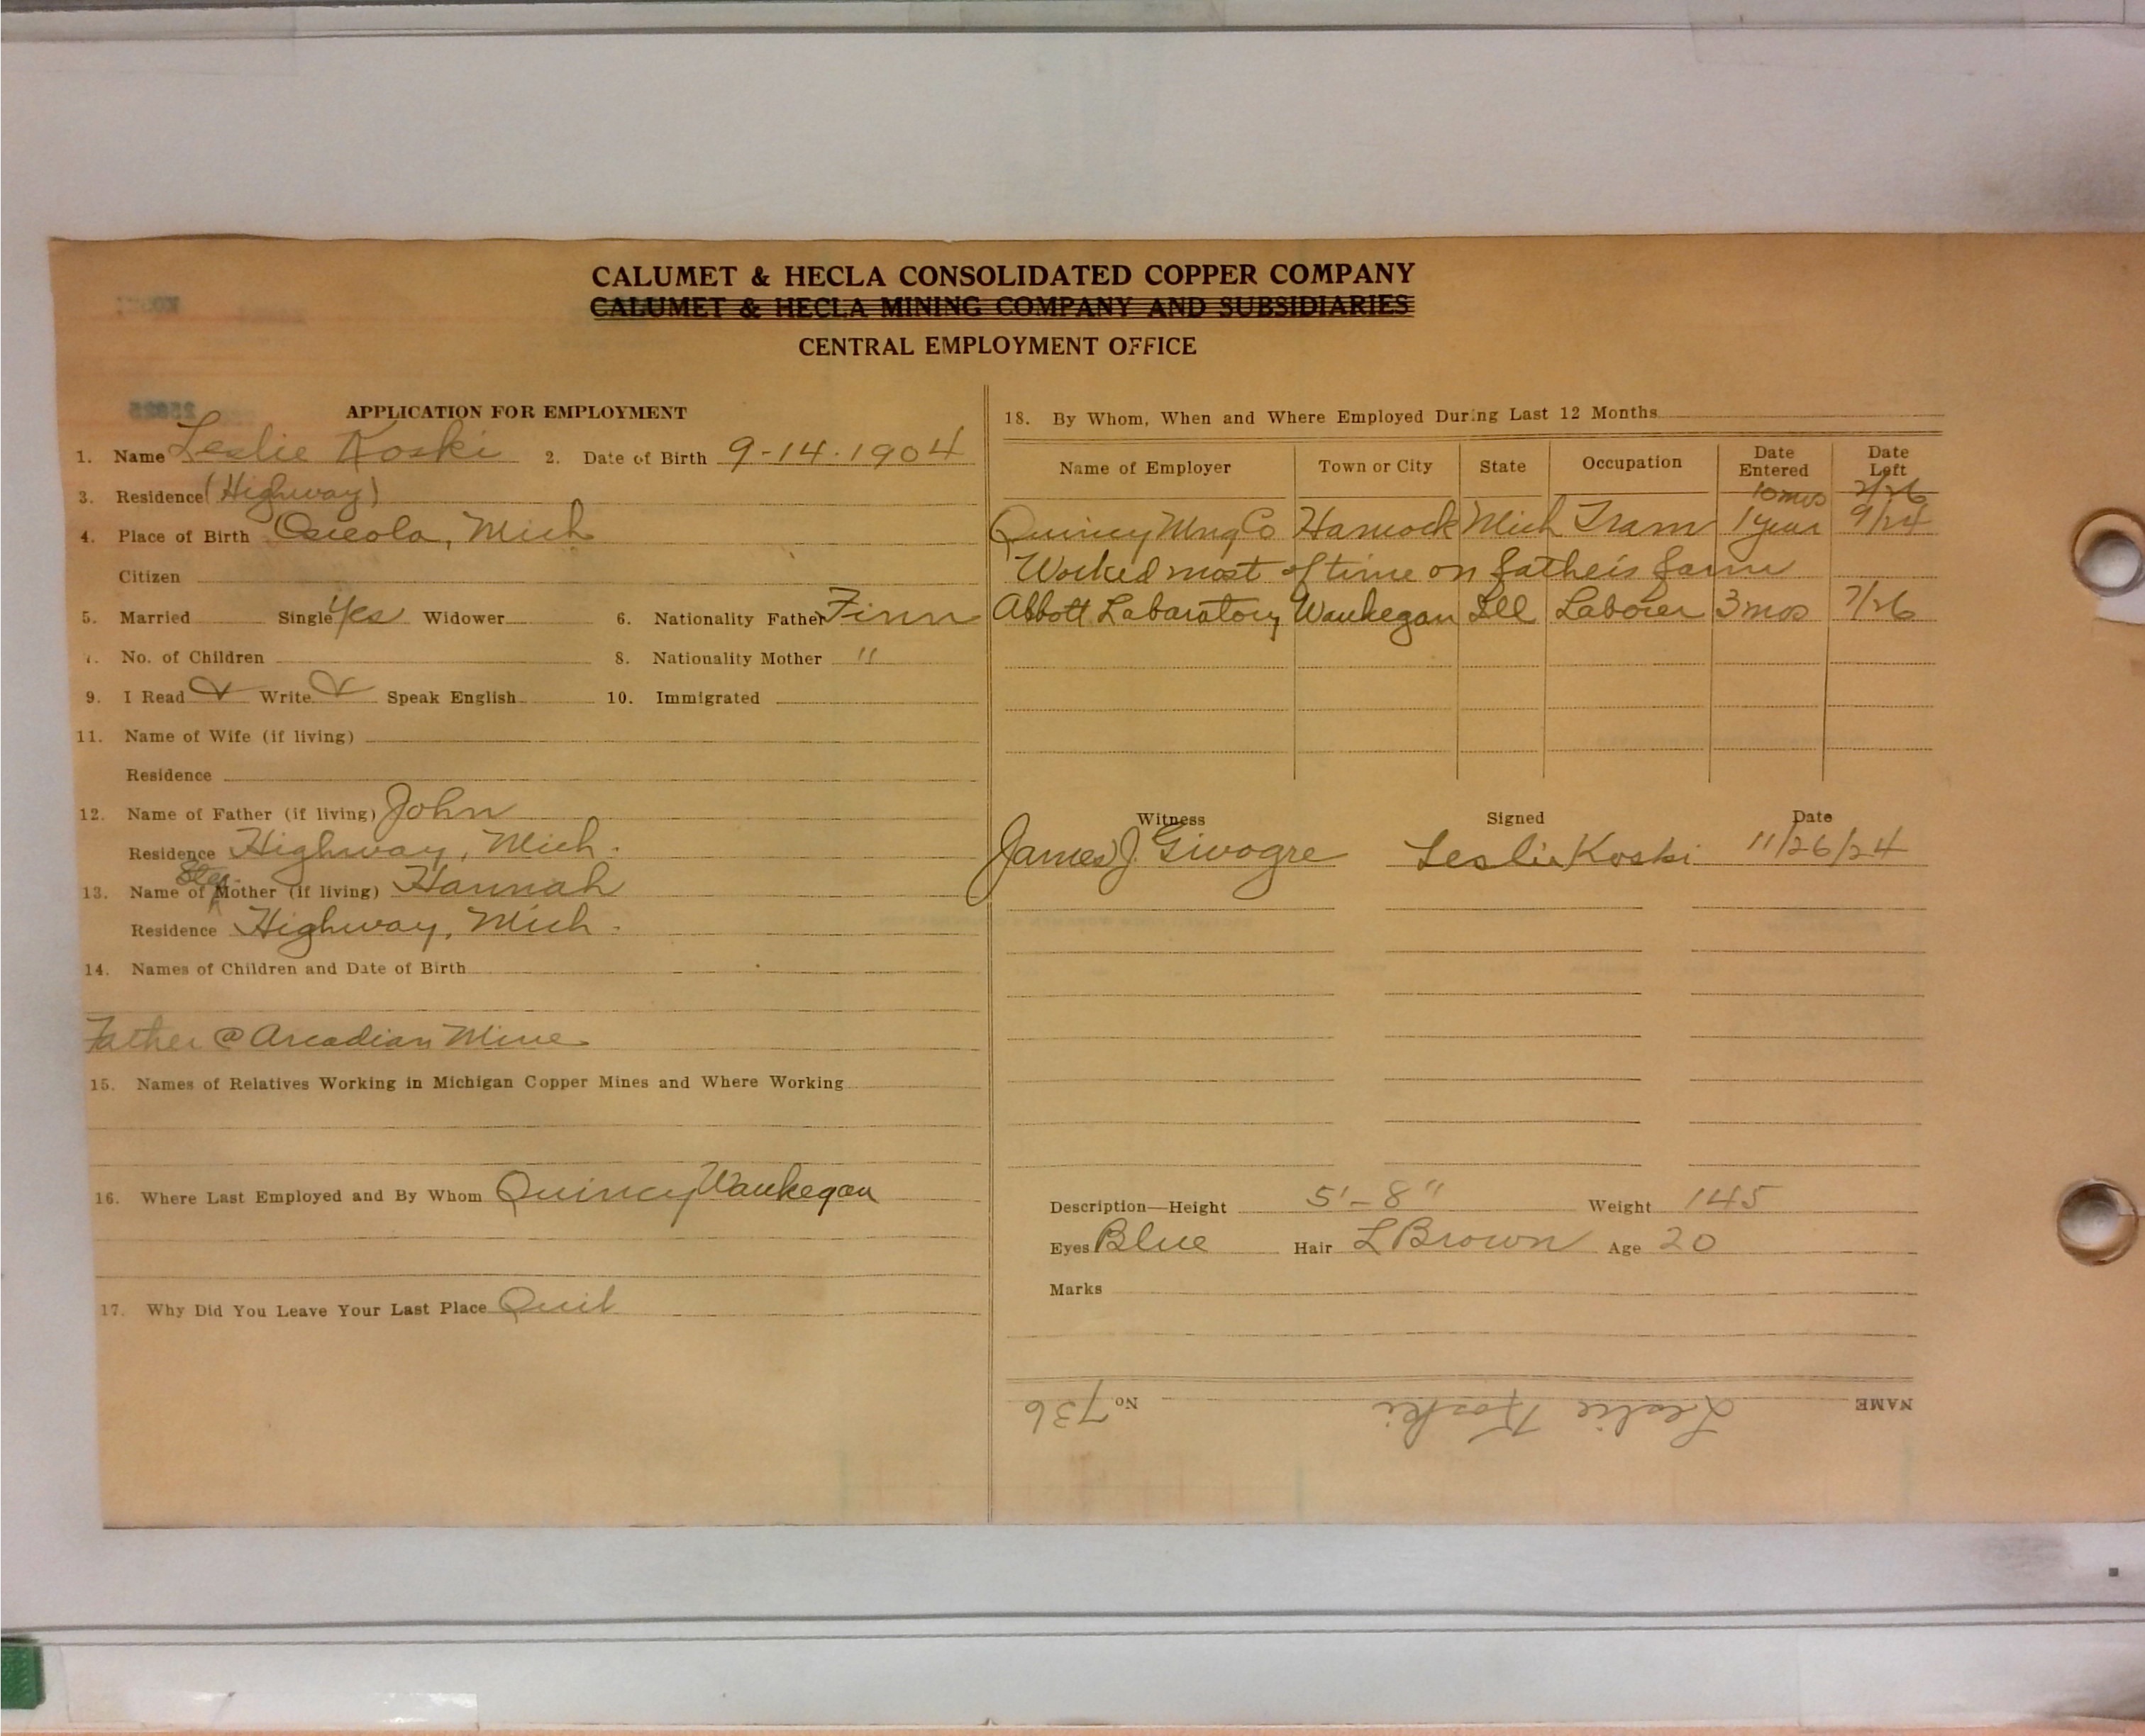 CALUMET & HECLA CONSOLIDATED COPPER COMPANY
CALUMET & HECLA MINING COMPANY AND SUBSIDIARIES
CENTRAL EMPLOYMENT OFFICE
APPLICATION FOR EMPLOYMENT
1. Name Leslie Koski 2. Date of Birth 9-14-1904
3. Residence (Highway)
4. Place of Birth Osceola, Mich
Citizen
5. Married Single Yes Widower 6. Nationality Father Finn
7. No. of Children 8. Nationality Mother "
9. I Read ✓ Write ✓ Speak English 10. Immigrated
11. Name of Wife (if living)
Residence
12. Name of Father (if living) John
Residence Highway, Mich.
13. Name of Step Mother (if living) Hannah
Residence Highway, Mich.
14. Names of Children and Date of Birth
Father @ Arcadian Mine
15. Names of Relatives Working in Michigan Copper Mines and Where Working
16. Where Last Employed and By Whom Quincy Waukegan
17. Why Did You Leave Your Last Place Quit
18. By Whom, When and Where Employed During Last 12 Months
Name of Employer Town or City State Occupation Date Entered Date Left
10 mos 2/26
Quincy Mng Co Hancock Mich Tram 1 year 9/24
Worked most of time on father's farm
Abbott Labaratory Waukegan Ill Laborer 3 mos 7/26
Witness Signed Date
James J. Givogre Leslie Koski 11/26/24
Description—Height 5'-8" Weight 145
Eyes Blue Hair L Brown Age 20
Marks
NAME Leslie Koski No. 736